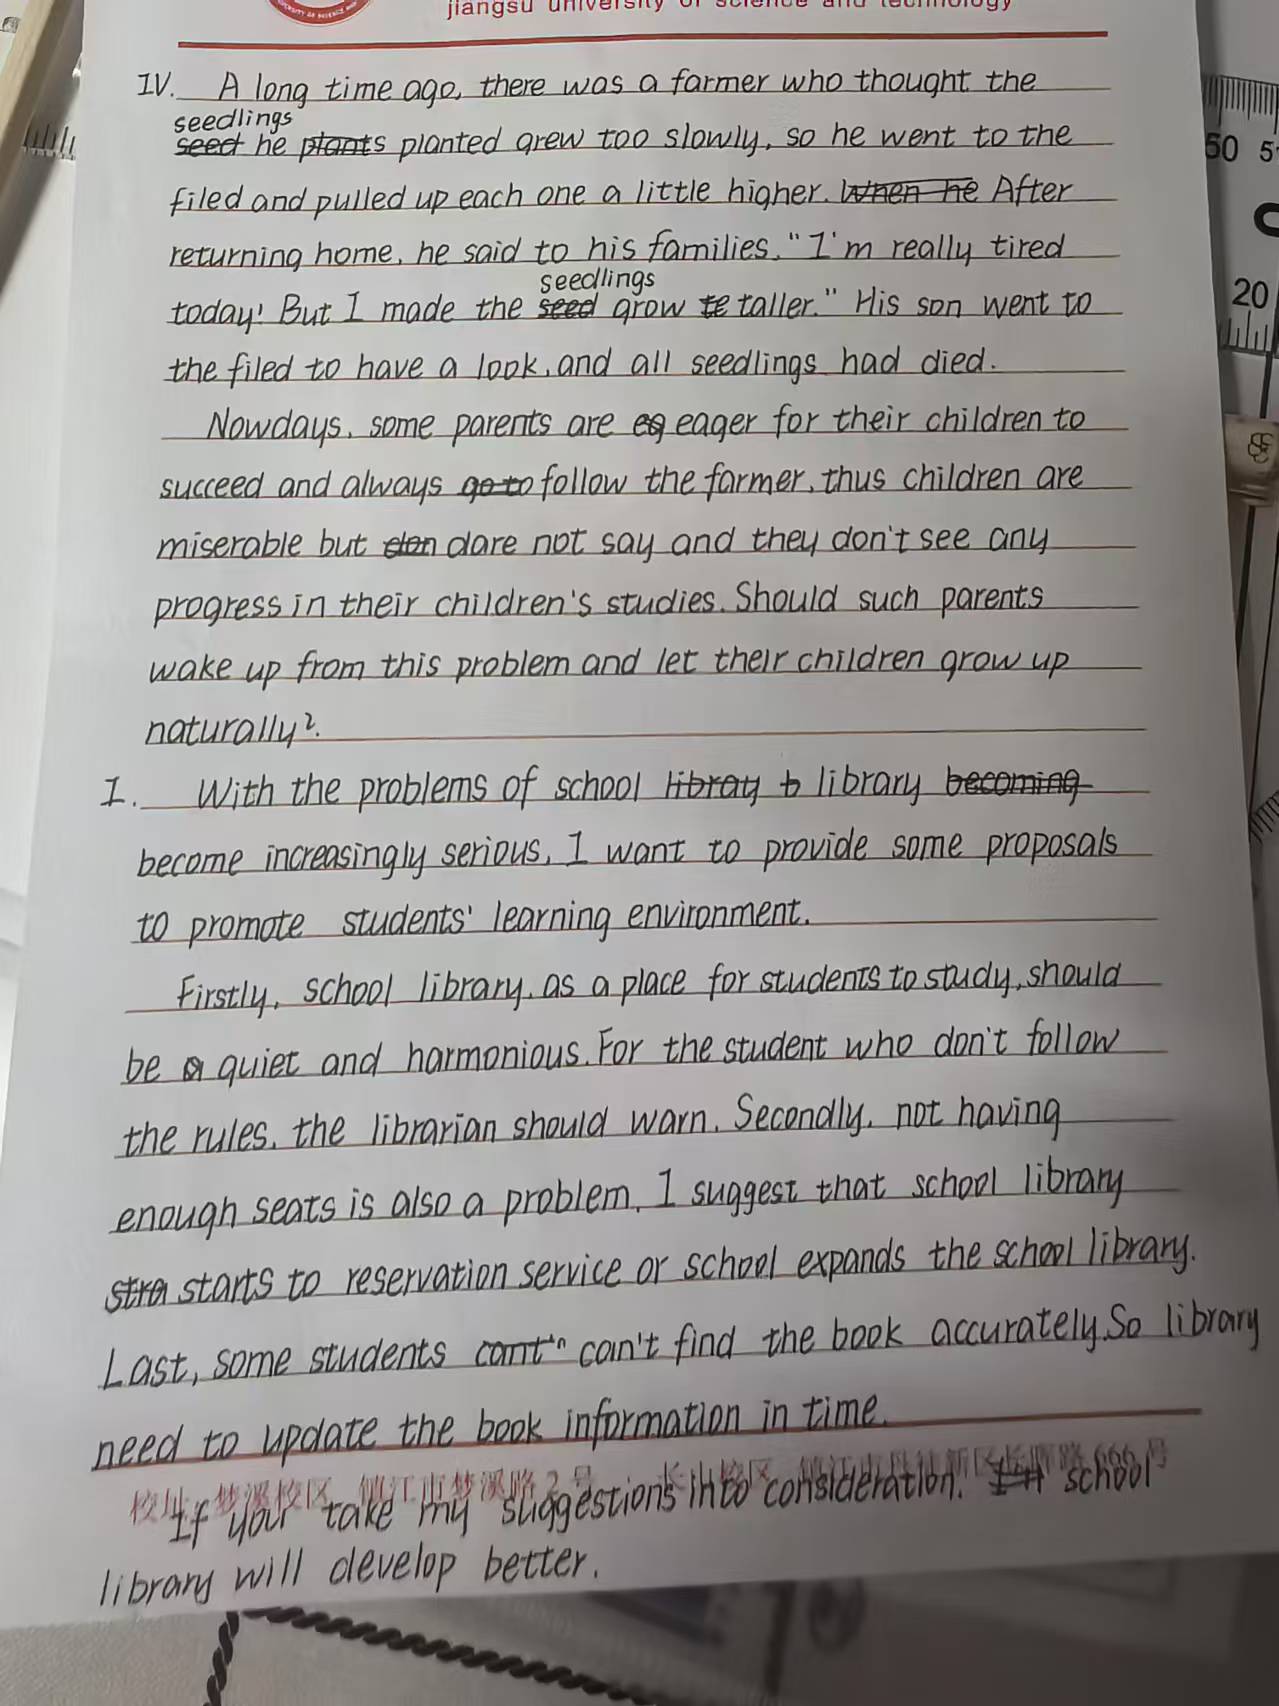 jiangsu university of science and technology
IV. A long time ago, there was a farmer who thought the
seedlings
seed he plants planted grew too slowly, so he went to the
filed and pulled up each one a little higher. When he After
returning home, he said to his families, "I'm really tired
seedlings
today! But I made the seed grow te taller." His son went to
the filed to have a look, and all seedlings had died.
Nowdays, some parents are eg eager for their children to
succeed and always go to follow the farmer, thus children are
miserable but don dare not say and they don't see any
progress in their children's studies. Should such parents
wake up from this problem and let their children grow up
naturally?.
I. With the problems of school libray b library becoming
become increasingly serious, I want to provide some proposals
to promote students' learning environment.
Firstly, school library, as a place for students to study, should
be a quiet and harmonious. For the student who don't follow
the rules, the librarian should warn. Secondly, not having
enough seats is also a problem, I suggest that school library
stra starts to reservation service or school expands the school library.
Last, some students cant'n can't find the book accurately. So library
need to update the book information in time.
校址：梦溪校区 镇江市梦溪路2号 长山校区 镇江市丹徒新区长晖路666号
If your take my suggestions into consideration. school
library will develop better.
50
20